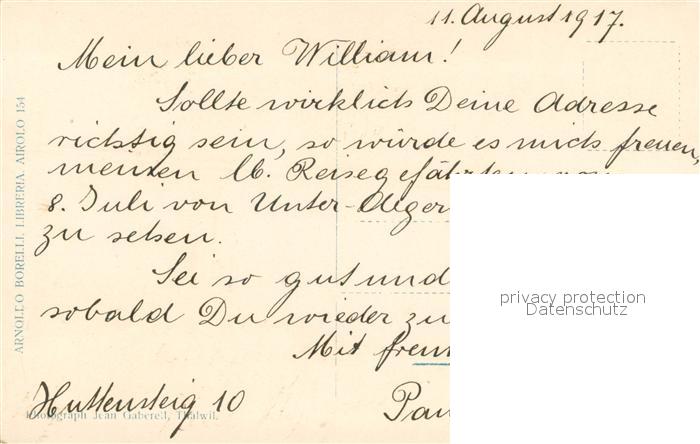 11. August 1917.
Mein lieber William!
Sollte wirklich Deine Adresse
richtig sein, so würde es mich freuen,
meinen lb. Reisegefährten vom
8. Juli von Unter-Aeger
zu sehen.
Sei so gut und
sobald Du wieder zu
Mit freun
Huttensteig 10
Pau
ARNOLDO BORELLI, LIBRERIA, AIROLO 154
Photograph Jean Gaberell, Thalwil.
privacy protection
Datenschutz